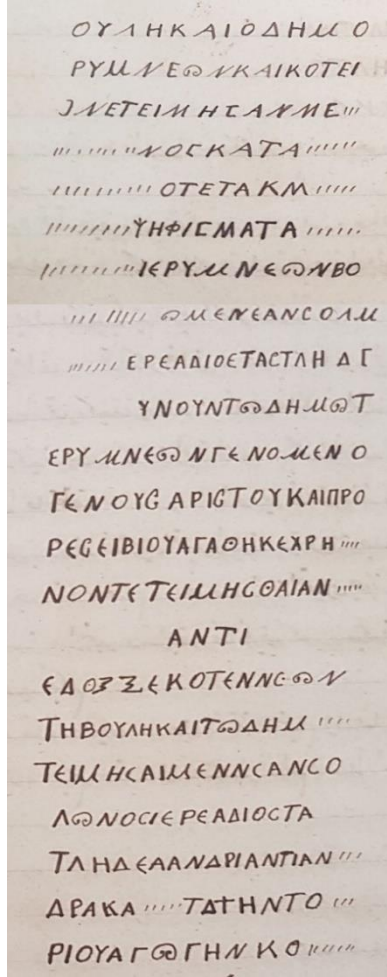 ΟΥΛΗΚΑΙΟΔΗΜΟ
ΡΥΜΝΕΩΝΚΑΙΚΟΤΕΙ
ΝΕΤΕΙΜΗΣΑΝΜΕ
ΝΟΣΚΑΤΑ
ΟΤΕΤΑΚΜ
ΨΗΦΙΣΜΑΤΑ
ΙΕΡΥΜΝΕΩΝΒΟ
ΩΜΕΝΕΑΝCΟΛΜ
ΕΡΕΑΔΙΟΕΤΑCΤΛΗΔΓ
ΥΝΟΥΝΤΩΔΗΜΩΤ
ΕΡΥΜΝΕΩΝΓΕΝΟΜΕΝΟ
ΓΕΝΟΥCΑΡΙCΤΟΥΚΑΙΠΡΟ
ΡΕCΕΙΒΙΟΥΑΓΑΘΗΚΕΧΡΗ
ΝΟΝΤΕΤΕΙΜΗCΘΑΙΑΝ
ΑΝΤΙ
ΕΔΟΞΞΕΚΟΤΕΝΝCΩΝ
ΤΗΒΟΥΛΗΚΑΙΤΩΔΗΜ
ΤΕΙΜΗCΑΙΜΕΝΝCΑΝCΟ
ΛΩΝΟCΙΕΡΕΑΔΙΟCΤΑ
ΤΛΗΔΕΑΑΝΔΡΙΑΝΤΙΑΝ
ΔΡΑΚΑ ΤΔΤΗΝΤΟ
ΡΙΟΥΑΓΩΓΗΝΚΟ